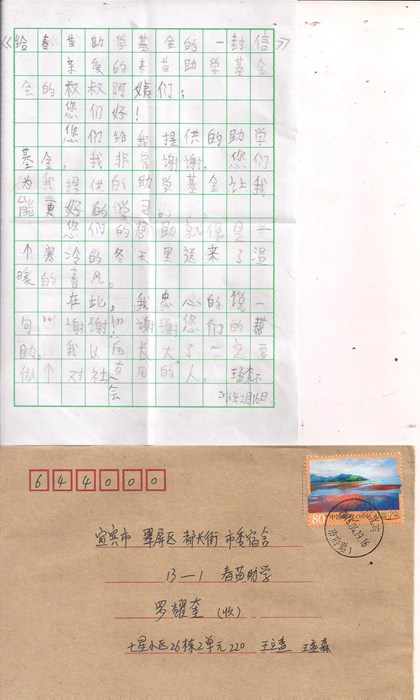 《给春苗助学基金的一封信》
亲爱的春苗助学基金
会的叔叔阿姨们：
您们好！
您们给我提供的助学
基金，我非常谢谢，您们
为我提供的助学基金让我
能更好的学习
您们的帮助就像是一
个寒冷的冬天里送来了温
暖的春风。
在此，我忠心的说一
句"谢谢！"谢谢您们的帮
助。我以后长大了一定要
做个对社会有用的人。
2016年2月16日
644000
宜宾市 翠屏区 都长街 市委宿舍
13-1 春苗助学
罗耀奎（收）
七星小区26栋2单元220
80分